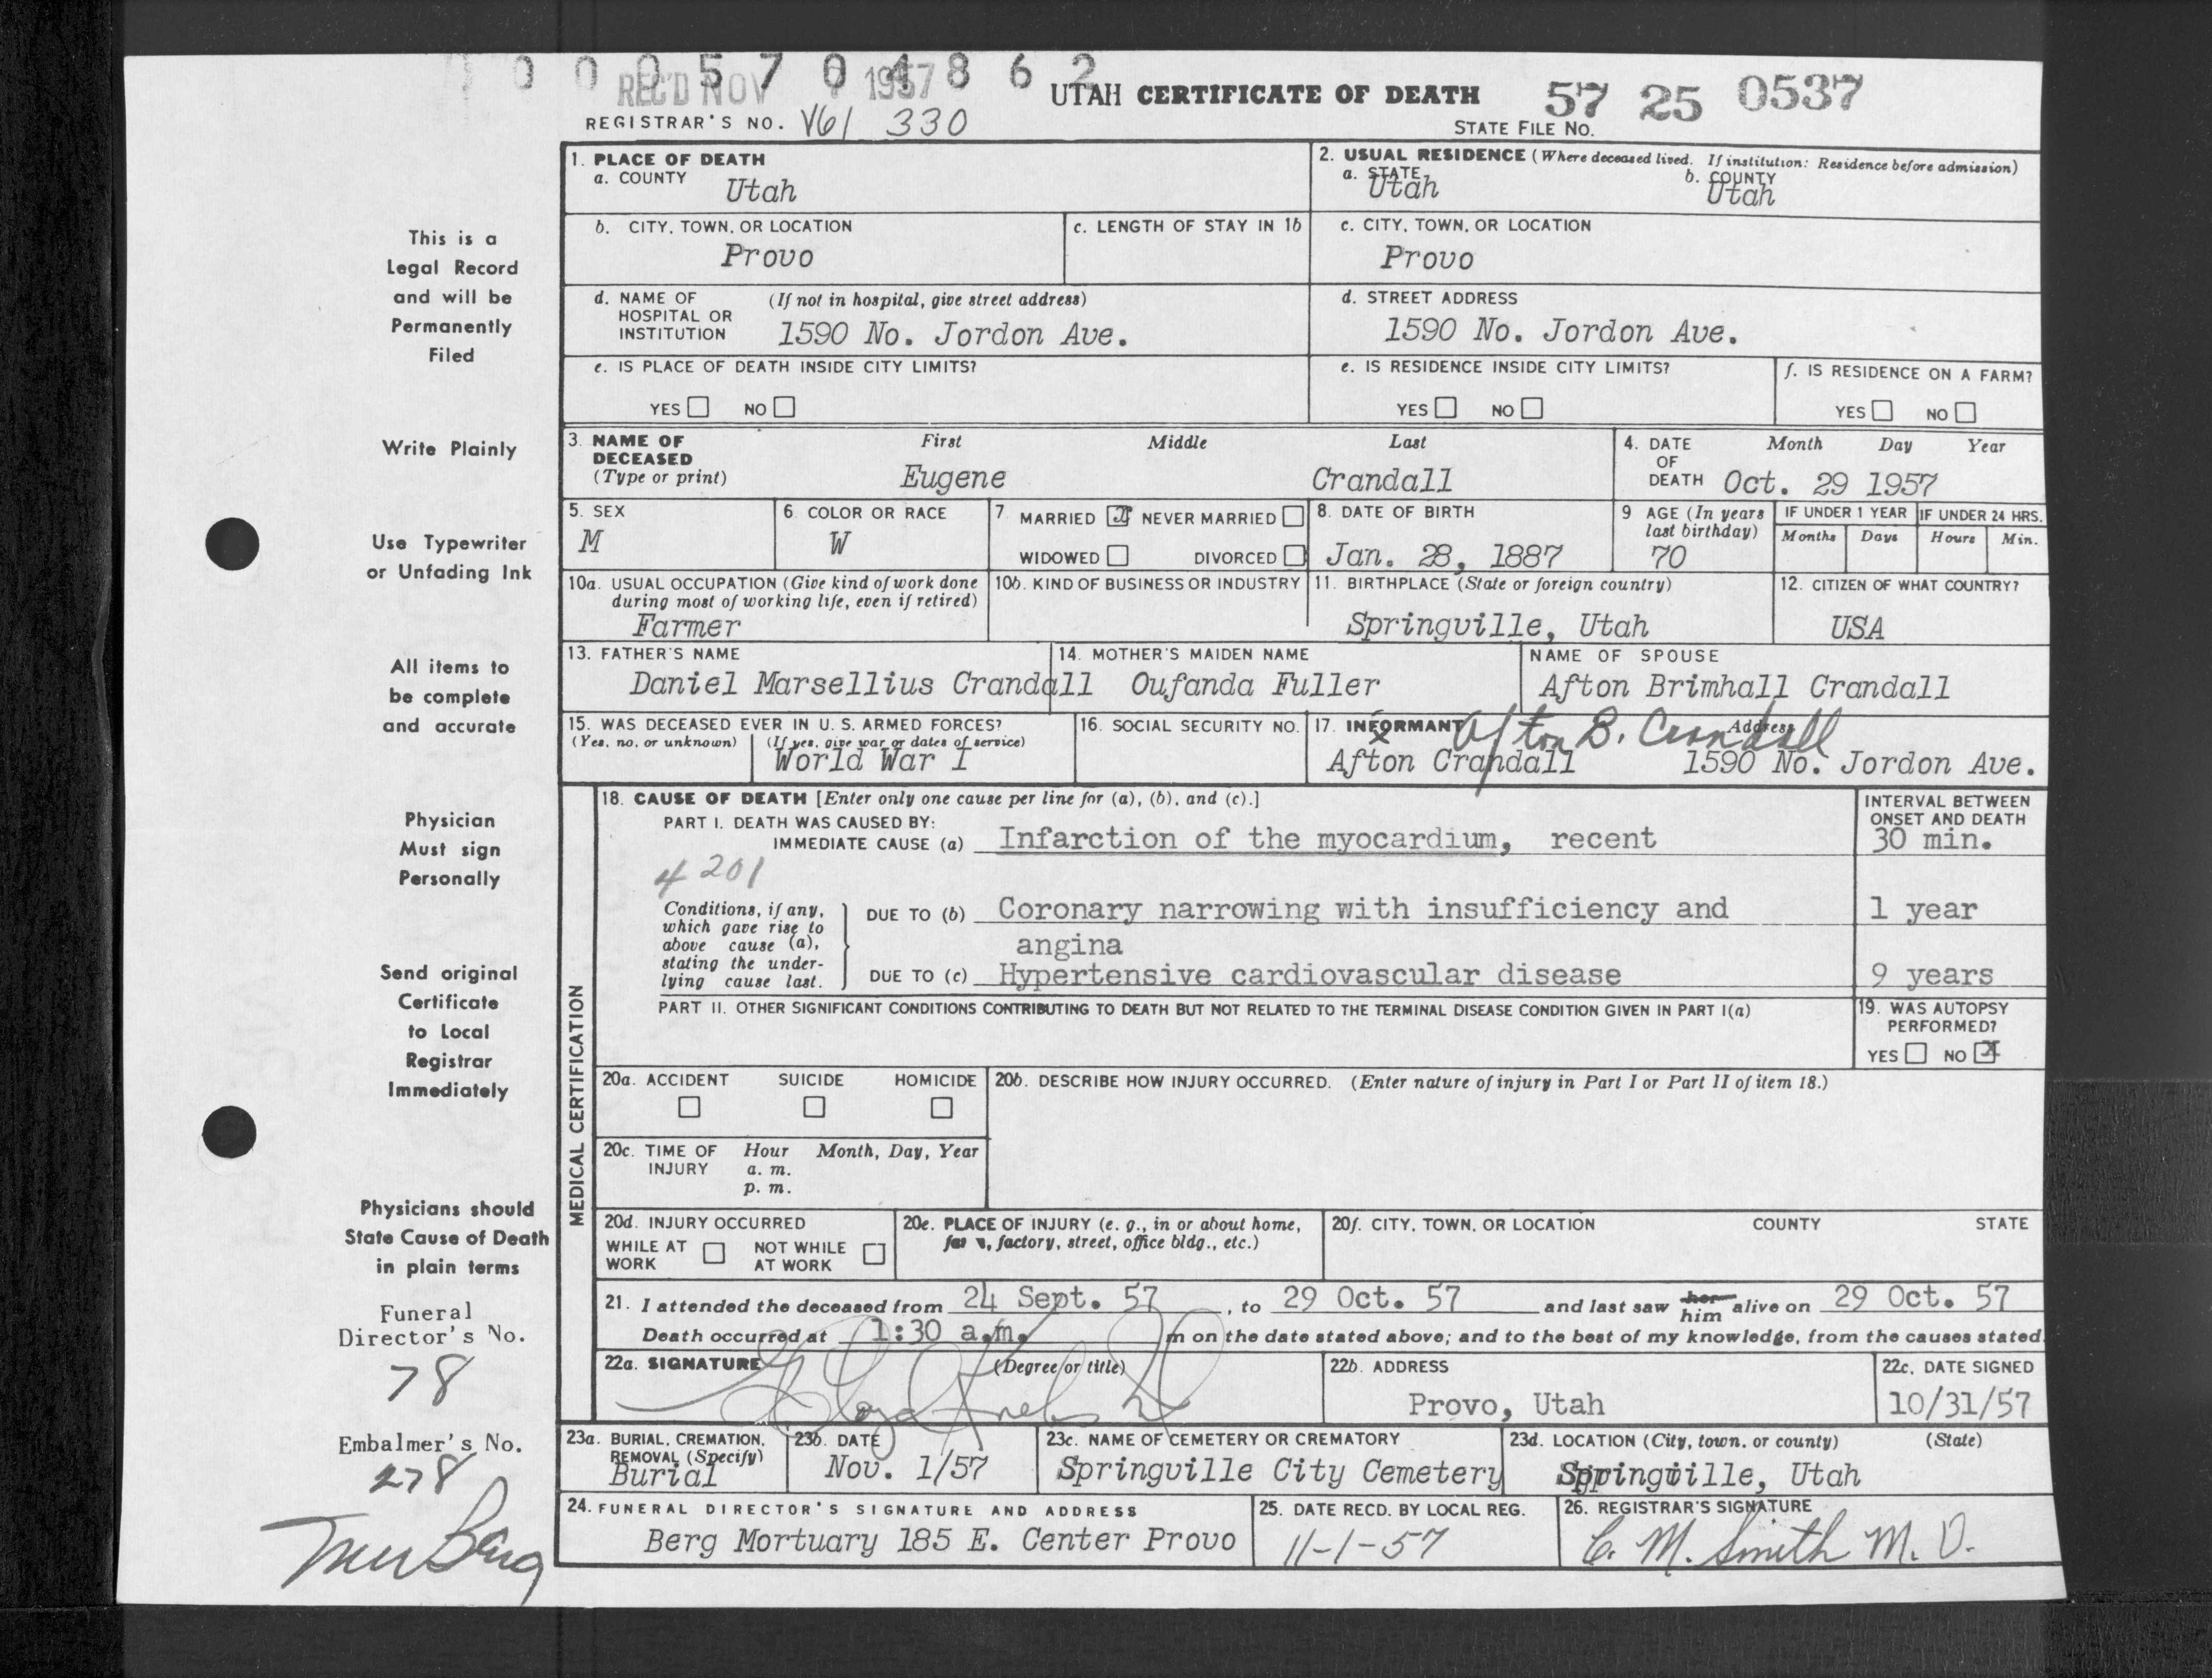 0005704862
REC'D NOV 1957
UTAH CERTIFICATE OF DEATH
57 25 0537
REGISTRAR'S NO. V61 330
STATE FILE NO.
1. PLACE OF DEATH
a. COUNTY Utah
2. USUAL RESIDENCE (Where deceased lived. If institution: Residence before admission)
a. STATE Utah b. COUNTY Utah
b. CITY, TOWN, OR LOCATION
Provo
c. LENGTH OF STAY IN 1b
c. CITY, TOWN, OR LOCATION
Provo
d. NAME OF HOSPITAL OR INSTITUTION (If not in hospital, give street address)
1590 No. Jordon Ave.
d. STREET ADDRESS
1590 No. Jordon Ave.
e. IS PLACE OF DEATH INSIDE CITY LIMITS?
YES NO
e. IS RESIDENCE INSIDE CITY LIMITS?
YES NO
f. IS RESIDENCE ON A FARM?
YES NO
3. NAME OF DECEASED (Type or print)
First Middle Last
Eugene Crandall
4. DATE OF DEATH
Month Day Year
Oct. 29 1957
5. SEX
M
6. COLOR OR RACE
W
7. MARRIED X NEVER MARRIED
WIDOWED DIVORCED
8. DATE OF BIRTH
Jan. 28, 1887
9 AGE (In years last birthday)
70
IF UNDER 1 YEAR
Months Days
IF UNDER 24 HRS.
Hours Min.
10a. USUAL OCCUPATION (Give kind of work done during most of working life, even if retired)
Farmer
10b. KIND OF BUSINESS OR INDUSTRY
11. BIRTHPLACE (State or foreign country)
Springville, Utah
12. CITIZEN OF WHAT COUNTRY?
USA
13. FATHER'S NAME
Daniel Marsellius Crandall
14. MOTHER'S MAIDEN NAME
Oufanda Fuller
NAME OF SPOUSE
Afton Brimhall Crandall
15. WAS DECEASED EVER IN U. S. ARMED FORCES?
(Yes, no, or unknown) (If yes, give war or dates of service)
World War I
16. SOCIAL SECURITY NO.
17. INFORMANT Address
x Afton B. Crandall
Afton Crandall 1590 No. Jordon Ave.
MEDICAL CERTIFICATION
18. CAUSE OF DEATH [Enter only one cause per line for (a), (b), and (c).]
INTERVAL BETWEEN ONSET AND DEATH
PART I. DEATH WAS CAUSED BY:
IMMEDIATE CAUSE (a) Infarction of the myocardium, recent 30 min.
4201
Conditions, if any, which gave rise to above cause (a), stating the underlying cause last.
DUE TO (b) Coronary narrowing with insufficiency and 1 year
angina
DUE TO (c) Hypertensive cardiovascular disease 9 years
PART II. OTHER SIGNIFICANT CONDITIONS CONTRIBUTING TO DEATH BUT NOT RELATED TO THE TERMINAL DISEASE CONDITION GIVEN IN PART I(a)
19. WAS AUTOPSY PERFORMED?
YES NO X
20a. ACCIDENT SUICIDE HOMICIDE
20b. DESCRIBE HOW INJURY OCCURRED. (Enter nature of injury in Part I or Part II of item 18.)
20c. TIME OF INJURY
Hour Month, Day, Year
a. m.
p. m.
20d. INJURY OCCURRED
WHILE AT WORK NOT WHILE AT WORK
20e. PLACE OF INJURY (e. g., in or about home, factory, street, office bldg., etc.)
20f. CITY, TOWN, OR LOCATION COUNTY STATE
21. I attended the deceased from 24 Sept. 57, to 29 Oct. 57 and last saw her him alive on 29 Oct. 57
Death occurred at 1:30 a.m. m on the date stated above; and to the best of my knowledge, from the causes stated
22a. SIGNATURE (Degree or title)
22b. ADDRESS
Provo, Utah
22c. DATE SIGNED
10/31/57
23a. BURIAL, CREMATION, REMOVAL (Specify)
Burial
23b. DATE
Nov. 1/57
23c. NAME OF CEMETERY OR CREMATORY
Springville City Cemetery
23d. LOCATION (City, town, or county) (State)
Springville, Utah
24. FUNERAL DIRECTOR'S SIGNATURE AND ADDRESS
Berg Mortuary 185 E. Center Provo
25. DATE RECD. BY LOCAL REG.
11-1-57
26. REGISTRAR'S SIGNATURE
C. M. Smith M. D.
This is a
Legal Record
and will be
Permanently
Filed
Write Plainly
Use Typewriter
or Unfading Ink
All items to
be complete
and accurate
Physician
Must sign
Personally
Send original
Certificate
to Local
Registrar
Immediately
Physicians should
State Cause of Death
in plain terms
Funeral
Director's No.
78
Embalmer's No.
278
Berg